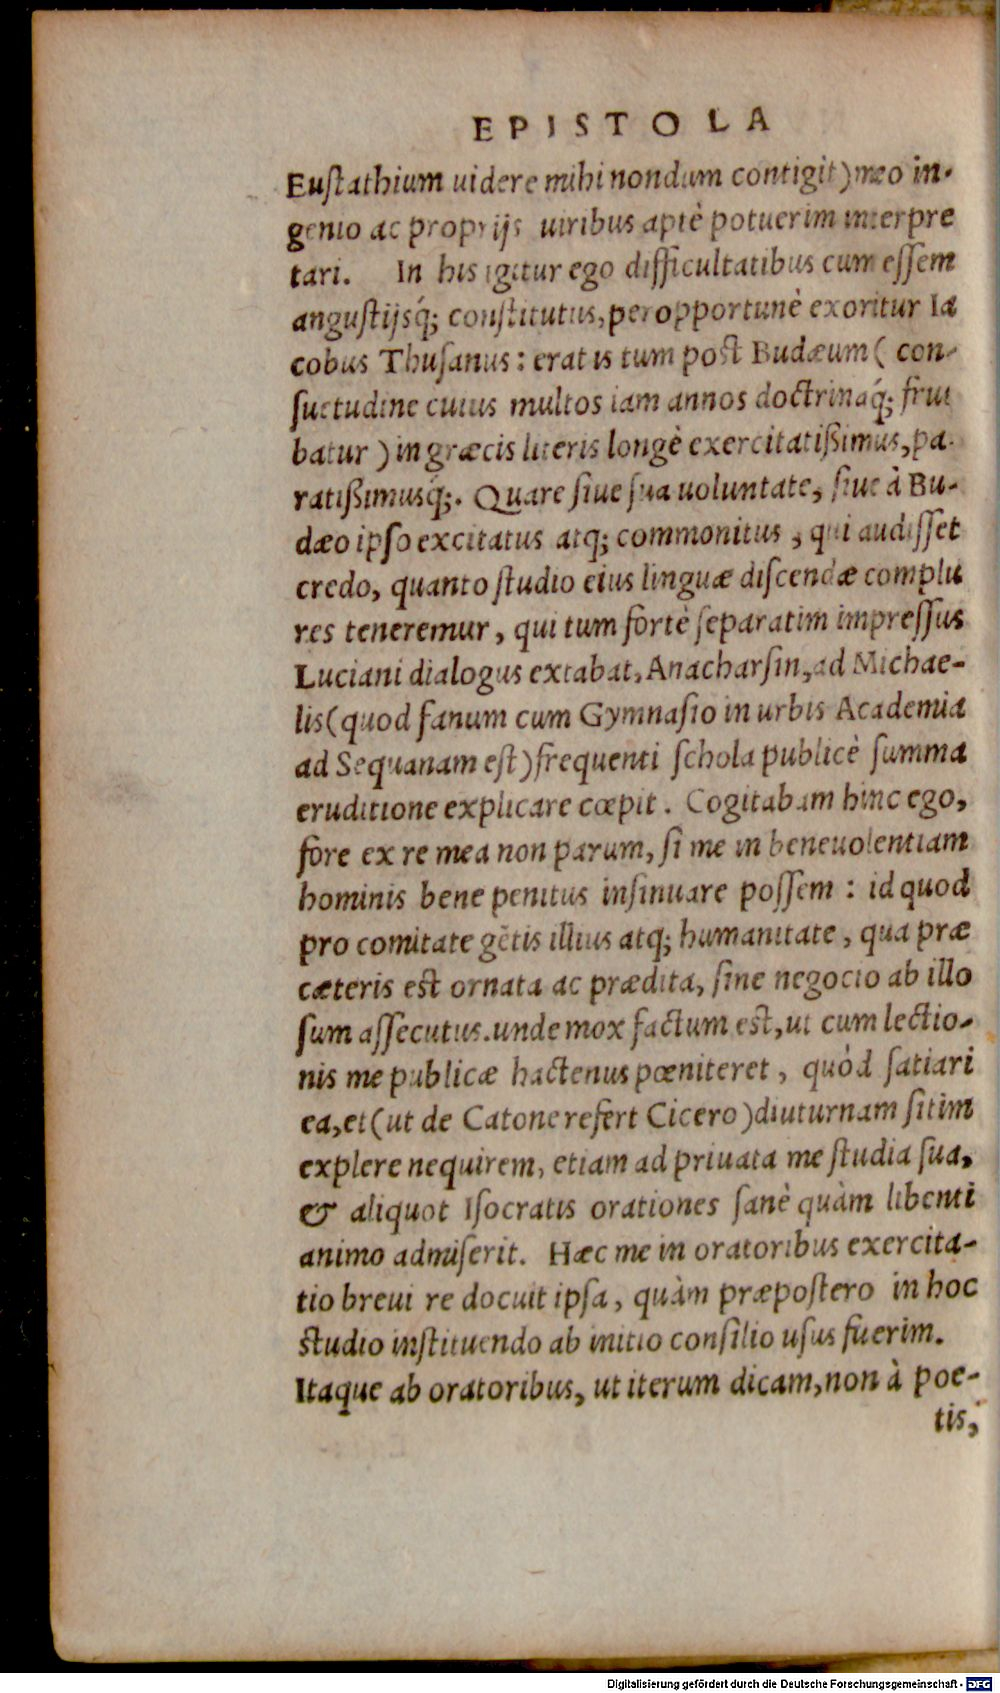 EPISTOLA
Euſtathium uidere mihi nondum contigit) meo in-
genio ac proprijs uiribus aptè potuerim interpre
tari. In his igitur ego difficultatibus cum eſſem
anguſtijsq́; conſtitutus, peropportunè exoritur Ia
cobus Thuſanus: erat is tum poſt Budæum ( con-
ſuetudine cuius multos iam annos doctrinaq́; frui
batur ) in græcis literis longè exercitatißimus, pa-
ratißimusq́;. Quare ſiue ſua uoluntate, ſiue à Bu-
dæo ipſo excitatus atq; commonitus, qui audiſſet
credo, quanto ſtudio eius linguæ diſcendæ complu
res teneremur, qui tum fortè ſeparatim impreſſus
Luciani dialogus extabat, Anacharſin, ad Michae-
lis (quod fanum cum Gymnaſio in urbis Academia
ad Sequanam eſt) frequenti ſchola publicè ſumma
eruditione explicare cœpit. Cogitabam hinc ego,
fore ex re mea non parum, ſi me in beneuolentiam
hominis bene penitus inſinuare poſſem : id quod
pro comitate gẽtis illius atq; humanitate, qua præ
cæteris eſt ornata ac prædita, ſine negocio ab illo
ſum aſſecutus. unde mox factum eſt, ut cum lectio-
nis me publicæ hactenus pœniteret, quòd ſatiari
ea, et (ut de Catone refert Cicero) diuturnam ſitim
explere nequirem, etiam ad priuata me ſtudia ſua,
& aliquot Iſocratis orationes ſanè quàm libenti
animo admiſerit. Hæc me in oratoribus exercita-
tio breui re docuit ipſa, quàm præpoſtero in hoc
ſtudio inſtituendo ab initio conſilio uſus fuerim.
Itaque ab oratoribus, ut iterum dicam, non à poe-
tis,
Digitalisierung gefördert durch die Deutsche Forschungsgemeinschaft - DFG